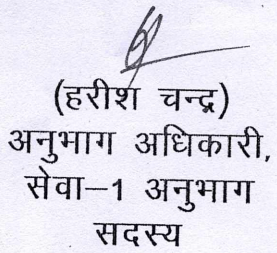 (हरीश चन्द्र)
अनुभाग अधिकारी,
सेवा–1 अनुभाग
सदस्य